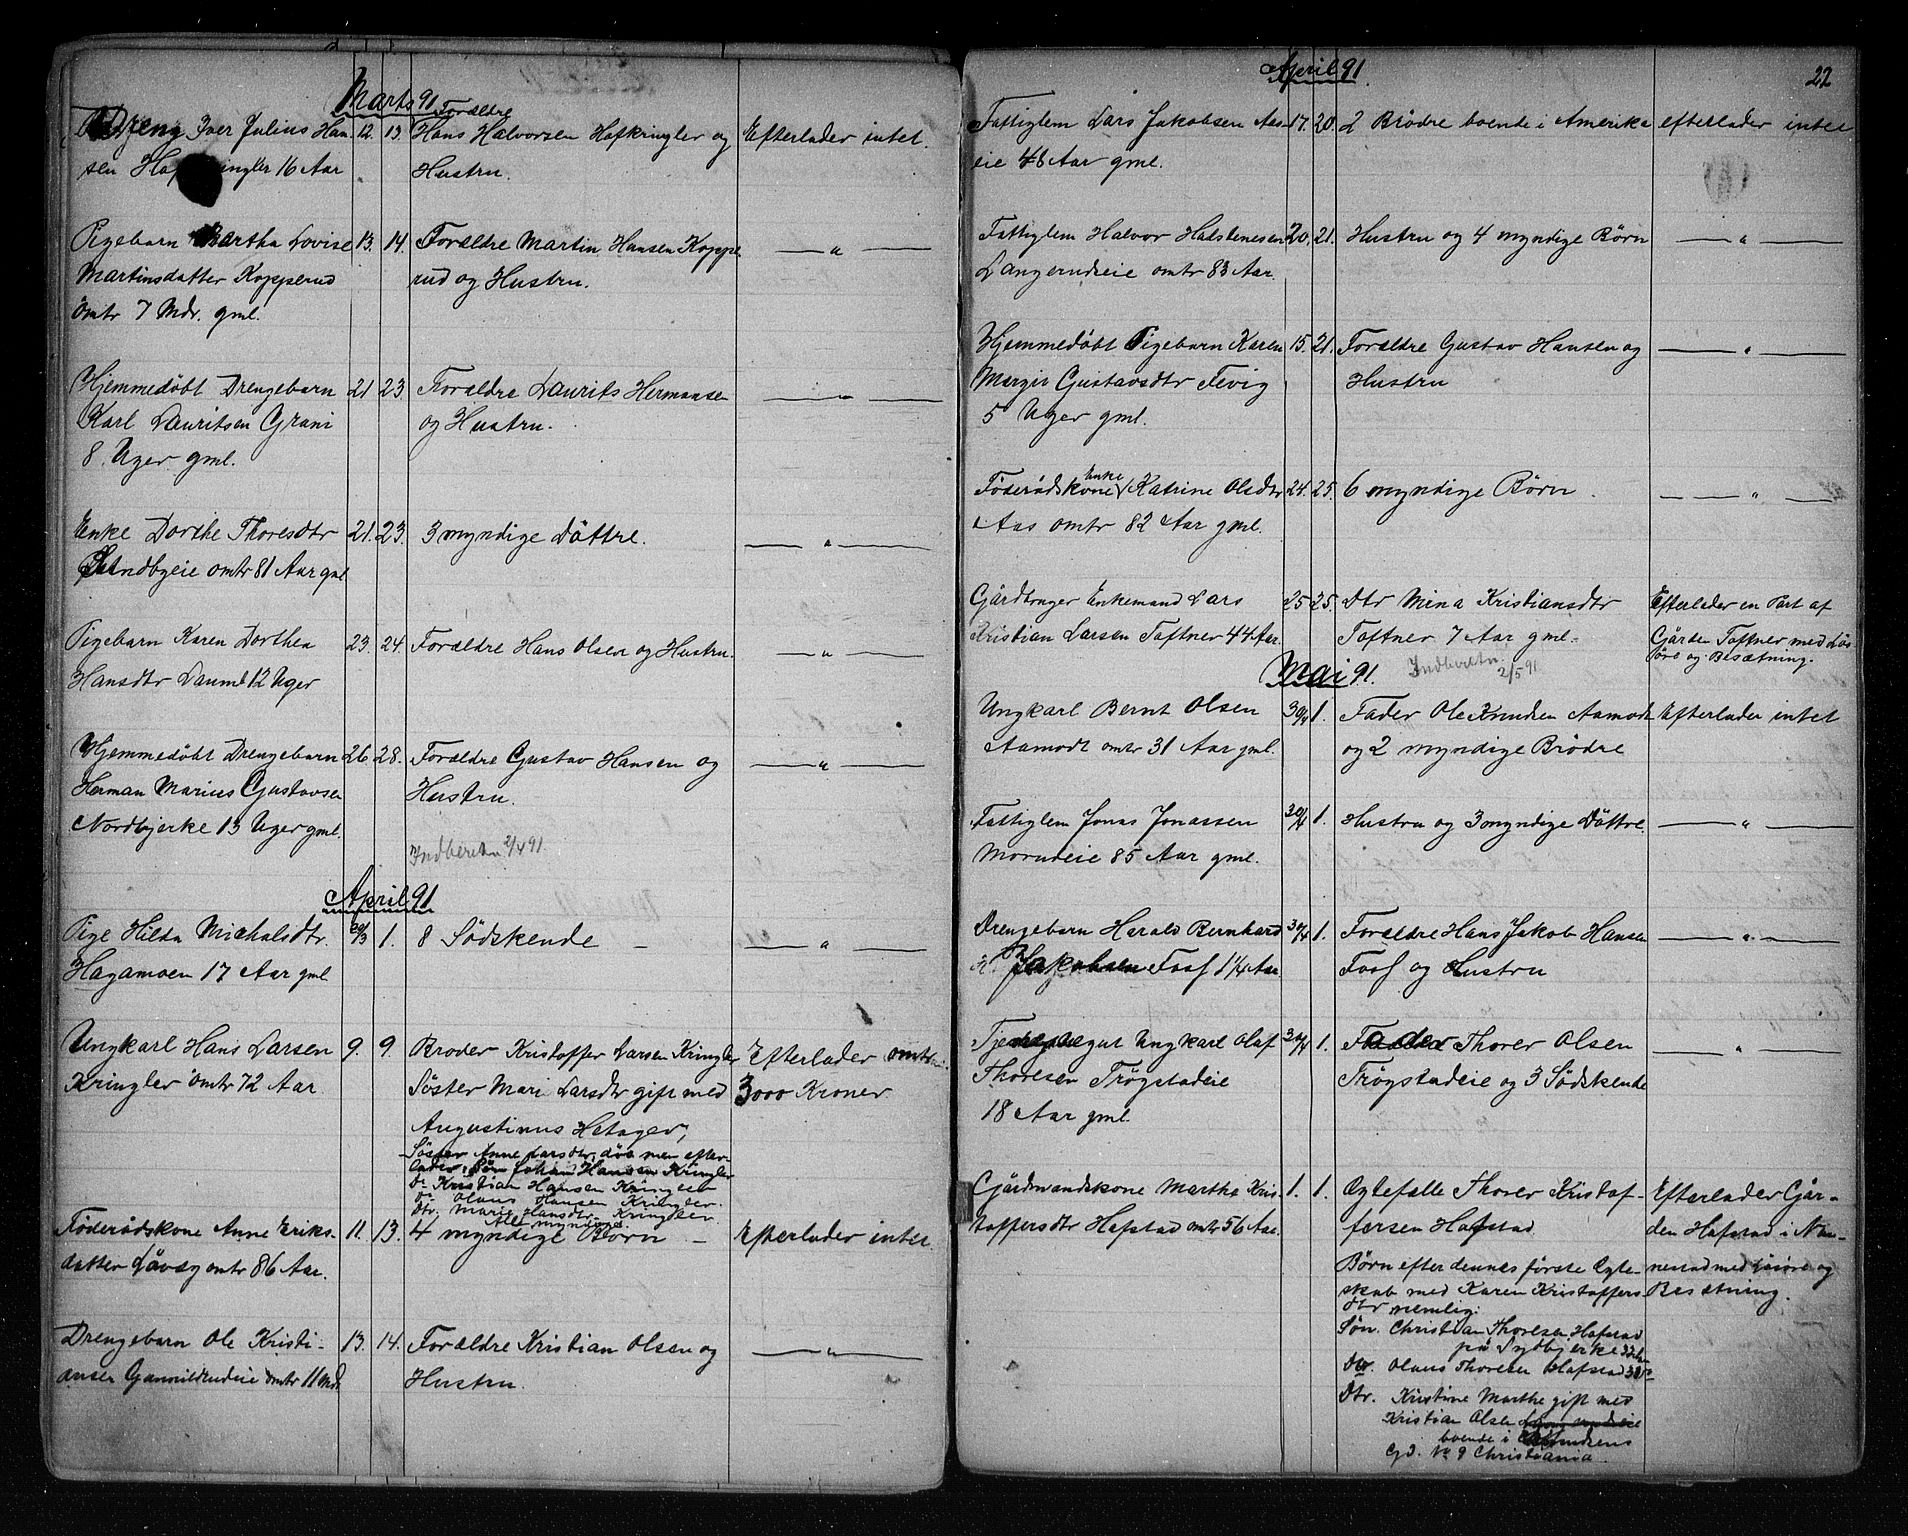 Marts 91
Dreng Iver Julius Han- 12. 13. Forældre Hans Halvorsen Hofkringler og Efterlader intet.
sen Hofkringler 16 Aar Hustru.
Pigebarn Martha Lovise 13. 14. Forældre Martin Hansen Koppe Martinsdatter Kopperud rud og Hustru. — " —
omtr 7 Mdr. gml.
Hjemmedøbt Drengebarn 21 23 Forældre Laurits Hermansen — " —
Karl Lauritsen Grani og Hustru.
8 Uger gml.
Enke Dorthe Thoresdtr 21. 23. 3 myndige Døttre. — " —
Sundbyeie omtr 81 Aar gml
Pigebarn Karen Dorthea 23. 24. Forældre Hans Olsen og Hustru. — " —
Hansdtr Dauml 12 Uger
Hjemmedøbt Drengebarn 26 28. Forældre Gustav Hansen og — " —
Herman Marius Gustavsen Hustru.
Nordbjerke 13 Uger gml.
Indberetn 2/4 91.
April 91
Pige Hilda Michalsdtr. 29/3 1. 8 Södskende — — " —
Hagamoen 17 Aar gml
Ungkarl Hans Larsen 9. 9. Broder Kristoffer Larsen Kringler Efterlader omtr
Kringler omtr 72 Aar. Søster Mari Larsdtr gift med 3000 Kroner
Augustinus Hetager,
Søster Anne Larsdtr, død men efter-
lader, Søn Johan Hansen Kringler
do Kristian Hansen Kringler
do Olaus Hansen Kringler.
Dtr. Marie Hansdtr Kringler
Alle myndige.
Föderådskone Anne Eriks- 11. 13. 4 myndige Børn — Efterlader intet.
datter Låvsy omtr 86 Aar.
Drengebarn Ole Kristi- 13. 14. Forældre Kristian Olsen og — " —
ansen Gunnildrudeie omtr 11 Md. Hustru.
April 91
22
Fattiglem Lars Jakobsen Aas- 17. 20. 2 Brödre boende i Amerika efterlader intet
eie 48 Aar gml.
Fattiglem Halvor Halstensen 20. 21. Hustru og 4 myndige Børn — " —
Langerudeie omtr 83 Aar.
Hjemmedøbt Pigebarn Karen 15. 21. Forældre Gustav Hansen og — " —
Margit Gustavsdtr Fevig Hustru
5 Uger gml.
Föderådskone Enke Katrine Olsdtr 24. 25. 6 myndige Børn. — " —
Aas omtr 82 Aar gml.
Gårdbruger Enkemand Lars 25 25. Dtr Mina Kristiansdtr Efterlader en Part af
Kristian Larsen Toftner 44 Aar Toftner 7 Aar gml. Gården Toftner med Lös
öre og Besætning.
Mai 91. Indberetn. 2/5 91
Ungkarl Bernt Olsen 30/4 1. Fader Ole Knudsen Aamodt Efterlader intet
Aamodt omtr 31 Aar gml. og 2 myndige Brödre
Fattiglem Jonas Jonassen 30/4 1. Hustru og 3 myndige Döttre — " —
Morudeie 85 Aar gml.
Drengebarn Harald Bernhard 30/4 1. Forældre Hans Jakob Hansen — " —
H. Jakobsen Foss 1 1/4 Aar Foss og Hustru
Tjenestegut Ungkarl Olaf 30/4 1. Fader Thorer Olsen — " —
Thoresen Trögstadeie Trögstadeie og 3 Södskende
18 Aar gml.
Gårdmandskone Marthe Kris 1. 1. Egtefelle Thorer Kristof- Efterlader Går-
toffersdtr Hafstad omtr 56 Aar. fersen Hafstad. den Hafstad i Nan-
Børn efter dennes første Egte- nestad med Løsöre og
skab med Karen Kristoffers- Besætning.
dtr nemlig:
Søn. Christian Thoresen Hafstad
på Sydbjerke 32 Aar
do Olaus Thoresen Hafstad 30
Dtr. Kristine Marthe gift med
Kristian Olsen
boende i
Gd. No 9 Christiania.